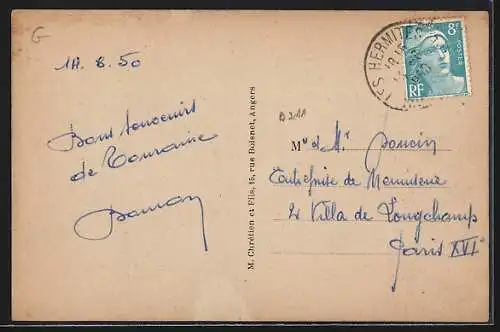 G
14.8.50
Bons souvenirs
de Touraine
M. Chrétien et Fils, 15, rue Boisnet, Angers
LES HERMITES
8F
POSTES
RF
B 211
Mr et Me
Entreprise de Menuiserie
2 Villa de Longchamp
Paris XVI